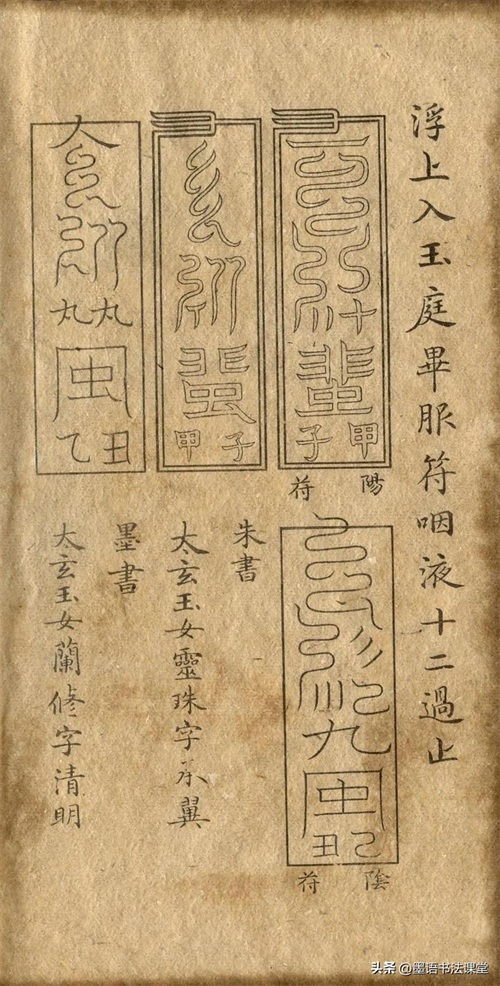 浮上入玉庭畢服符咽液十二過止
十
甲子
陽苻
九
乙丑
陰苻
子
甲
朱書
太玄玉女靈珠字承翼
丸丸
丑
乙
墨書
太玄玉女蘭修字清明
头条 @墨语书法课堂